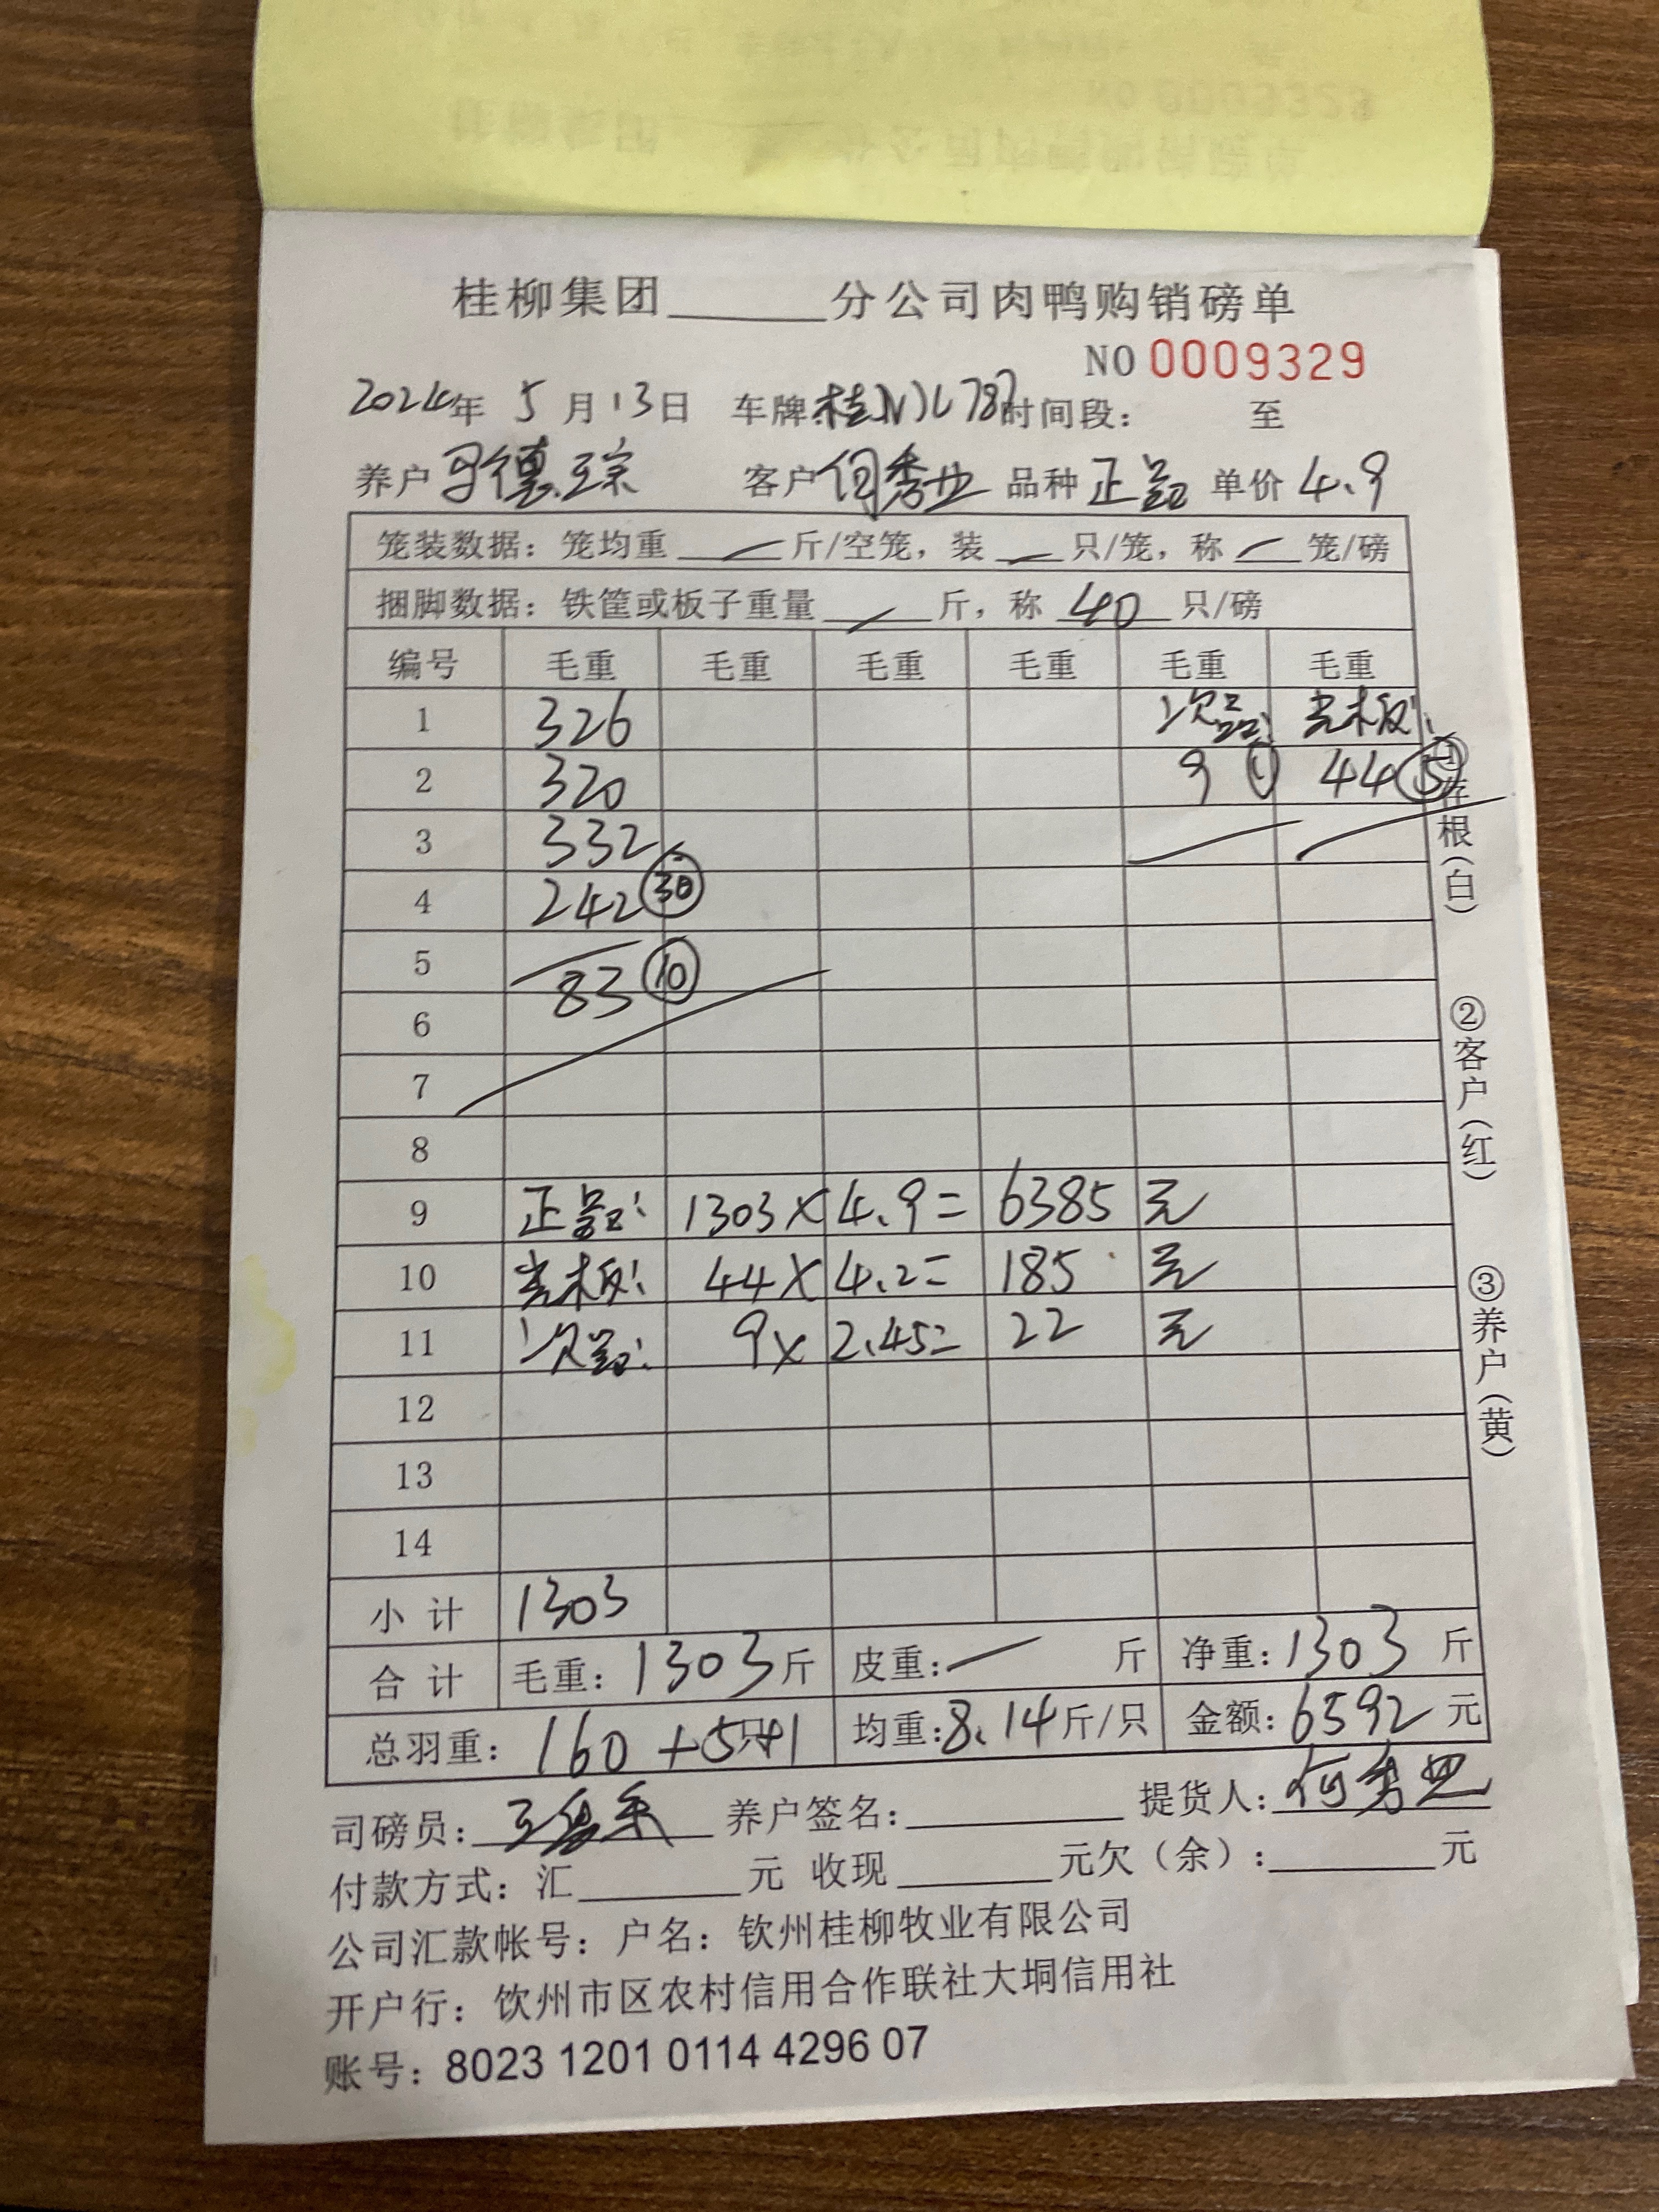 桂柳集团______分公司肉鸭购销磅单
NO 0009329
2024年 5月13日 车牌:桂N 时间段: 至
养户 德琮 客户 何秀世 品种 正品 单价 4.9
笼装数据：笼均重 斤/空笼，装 只/笼，称 笼/磅
捆脚数据：铁筐或板子重量 斤，称 40 只/磅
编号 毛重 毛重 毛重 毛重 毛重 毛重
1 326 次品: 光板:
2 320 9 ① 44 ⑤
3 332
4 242 ㉚
5 83 ⑩
6
7
8
9 正品: 1303× 4.9= 6385 元
10 光板: 44× 4.2= 185 元
11 次品: 9× 2.45= 22 元
12
13
14
小计 1303
合计 毛重: 1303斤 皮重:— 斤 净重:1303 斤
总羽重: 160+5只+1 均重:8.14斤/只 金额:6592元
司磅员: 养户签名: 提货人:何秀世
付款方式: 汇______元 收现______元欠（余）:______元
公司汇款帐号: 户名: 钦州桂柳牧业有限公司
开户行: 钦州市区农村信用合作联社大垌信用社
账号: 8023 1201 0114 4296 07
①存根(白)
②客户(红)
③养户(黄)